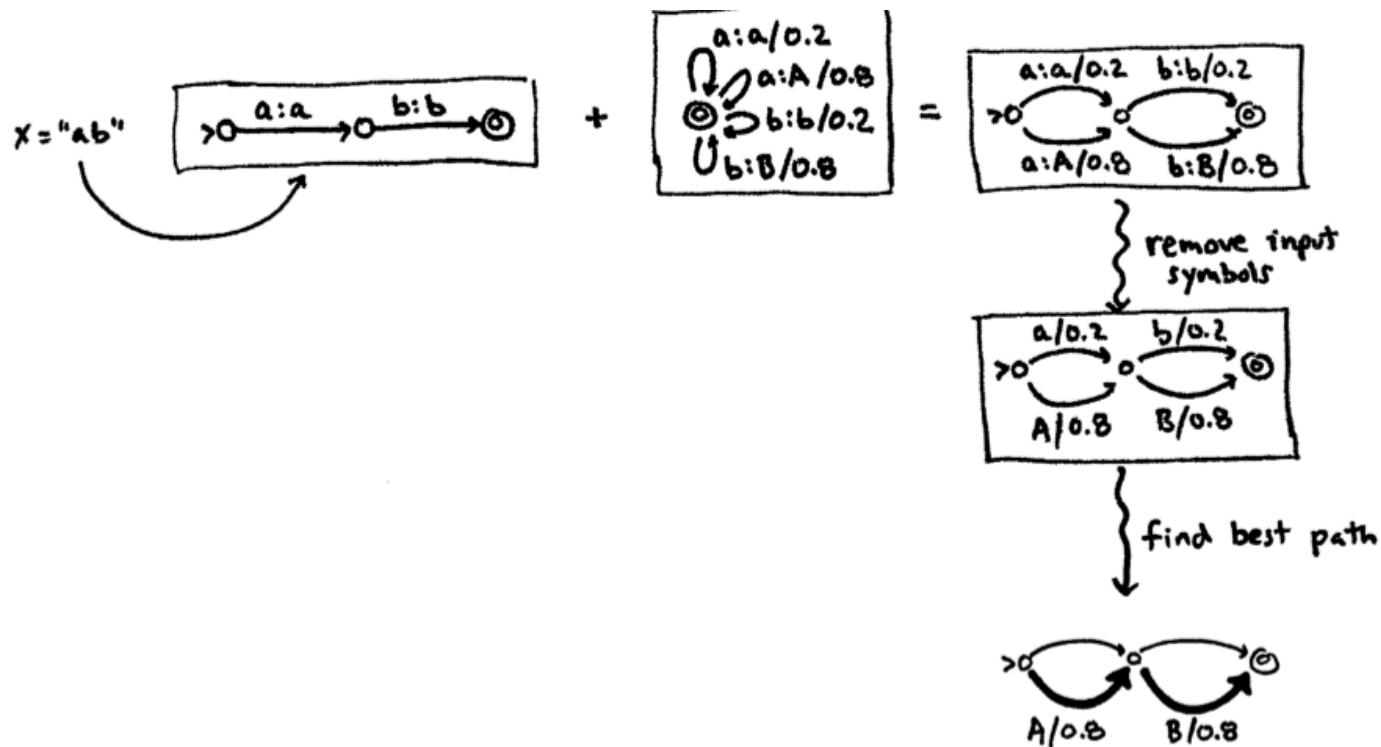 x = "ab"
a:a
b:b
+
a:a/0.2
a:A/0.8
b:b/0.2
b:B/0.8
=
a:a/0.2 b:b/0.2
>
a:A/0.8 b:B/0.8
remove input
symbols
a/0.2 b/0.2
>
A/0.8 B/0.8
find best path
>
A/0.8 B/0.8